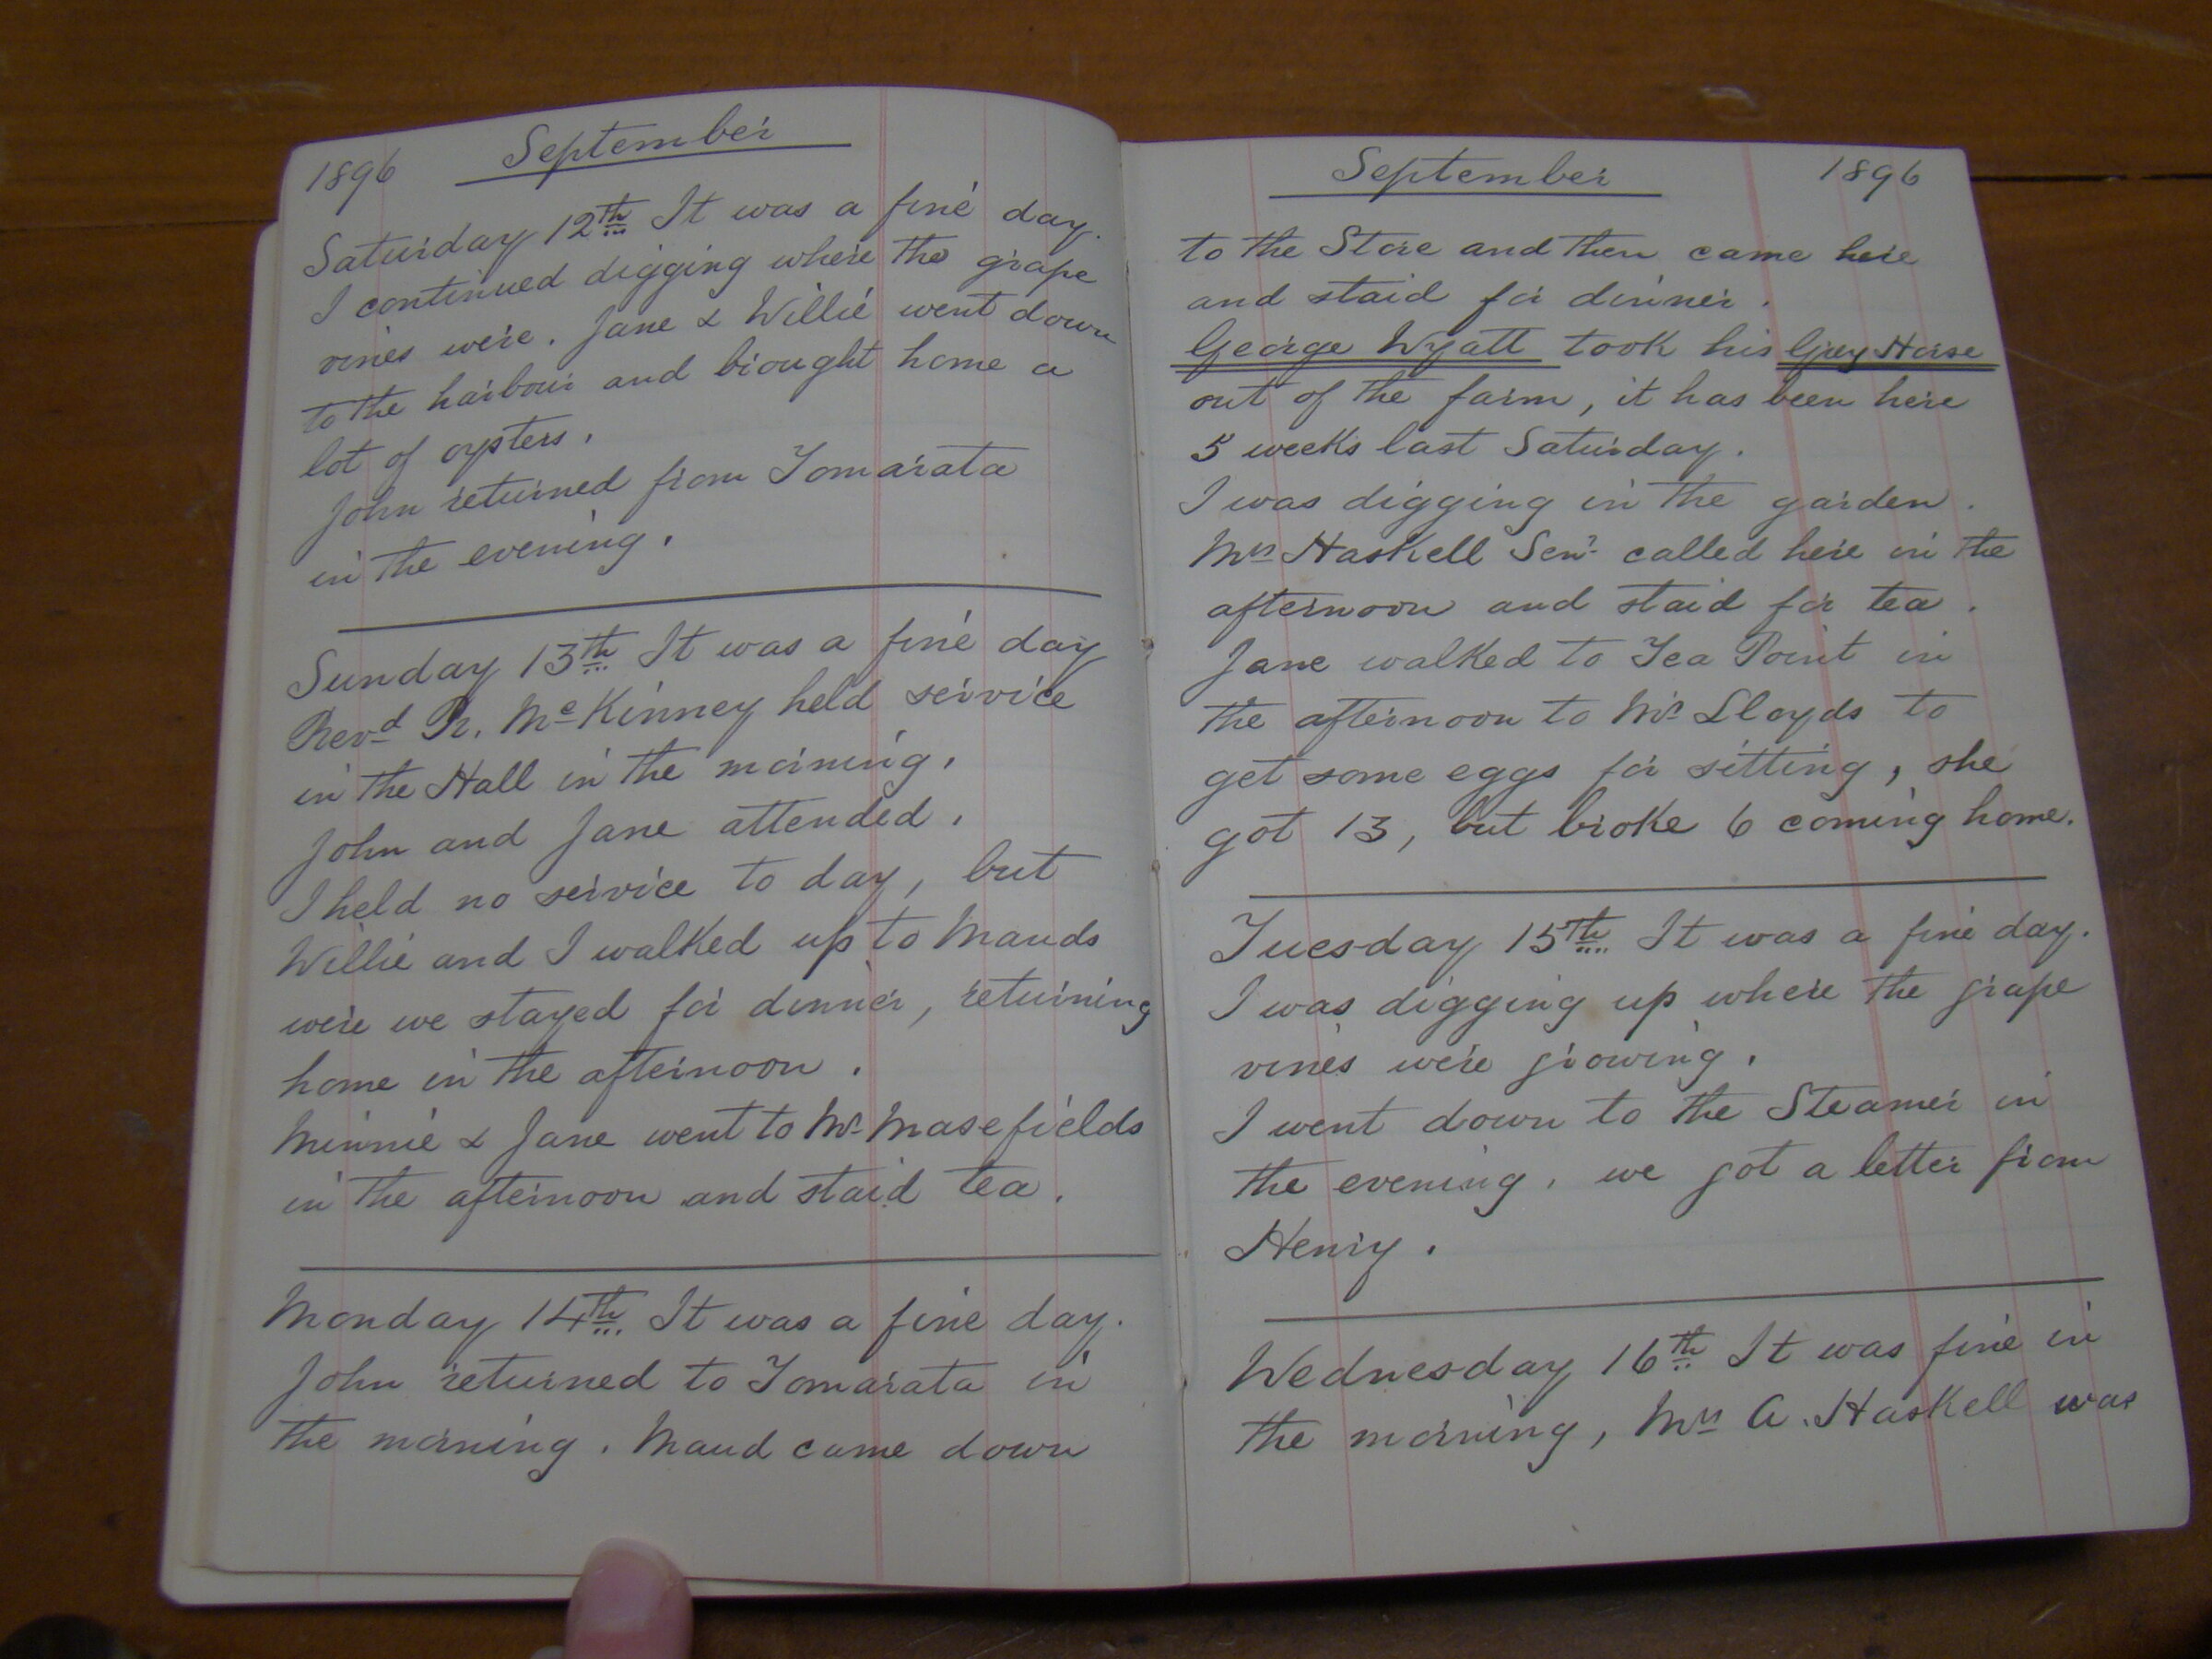 1896 September
Saturday 12th It was a fine day.
I continued digging where the grape
vines were. Jane & Willie went down
to the harbour and brought home a
lot of oysters.
John returned from Tomarata
in the evening.
Sunday 13th It was a fine day
Revd R. McKinney held service
in the Hall in the morning.
John and Jane attended.
I held no service to day, but
Willie and I walked up to Mauds
were we stayed for dinner, returning
home in the afternoon.
Minnie & Jane went to Mr Masefields
in the afternoon and staid tea.
Monday 14th It was a fine day.
John returned to Tomarata in
the morning. Maud came down
September 1896
to the Store and then came here
and staid for dinner.
George Wyatt took his Grey Horse
out of the farm, it has been here
5 weeks last Saturday.
I was digging in the garden.
Mrs Haskell Senr called here in the
afternoon and staid for tea.
Jane walked to Tea Point in
the afternoon to Mrs Lloyds to
get some eggs for sitting, she
got 13, but broke 6 coming home.
Tuesday 15th It was a fine day.
I was digging up where the grape
vines were growing.
I went down to the Steamer in
the evening. we got a letter from
Henry.
Wednesday 16th It was fine in
the morning, Mrs A. Haskell was